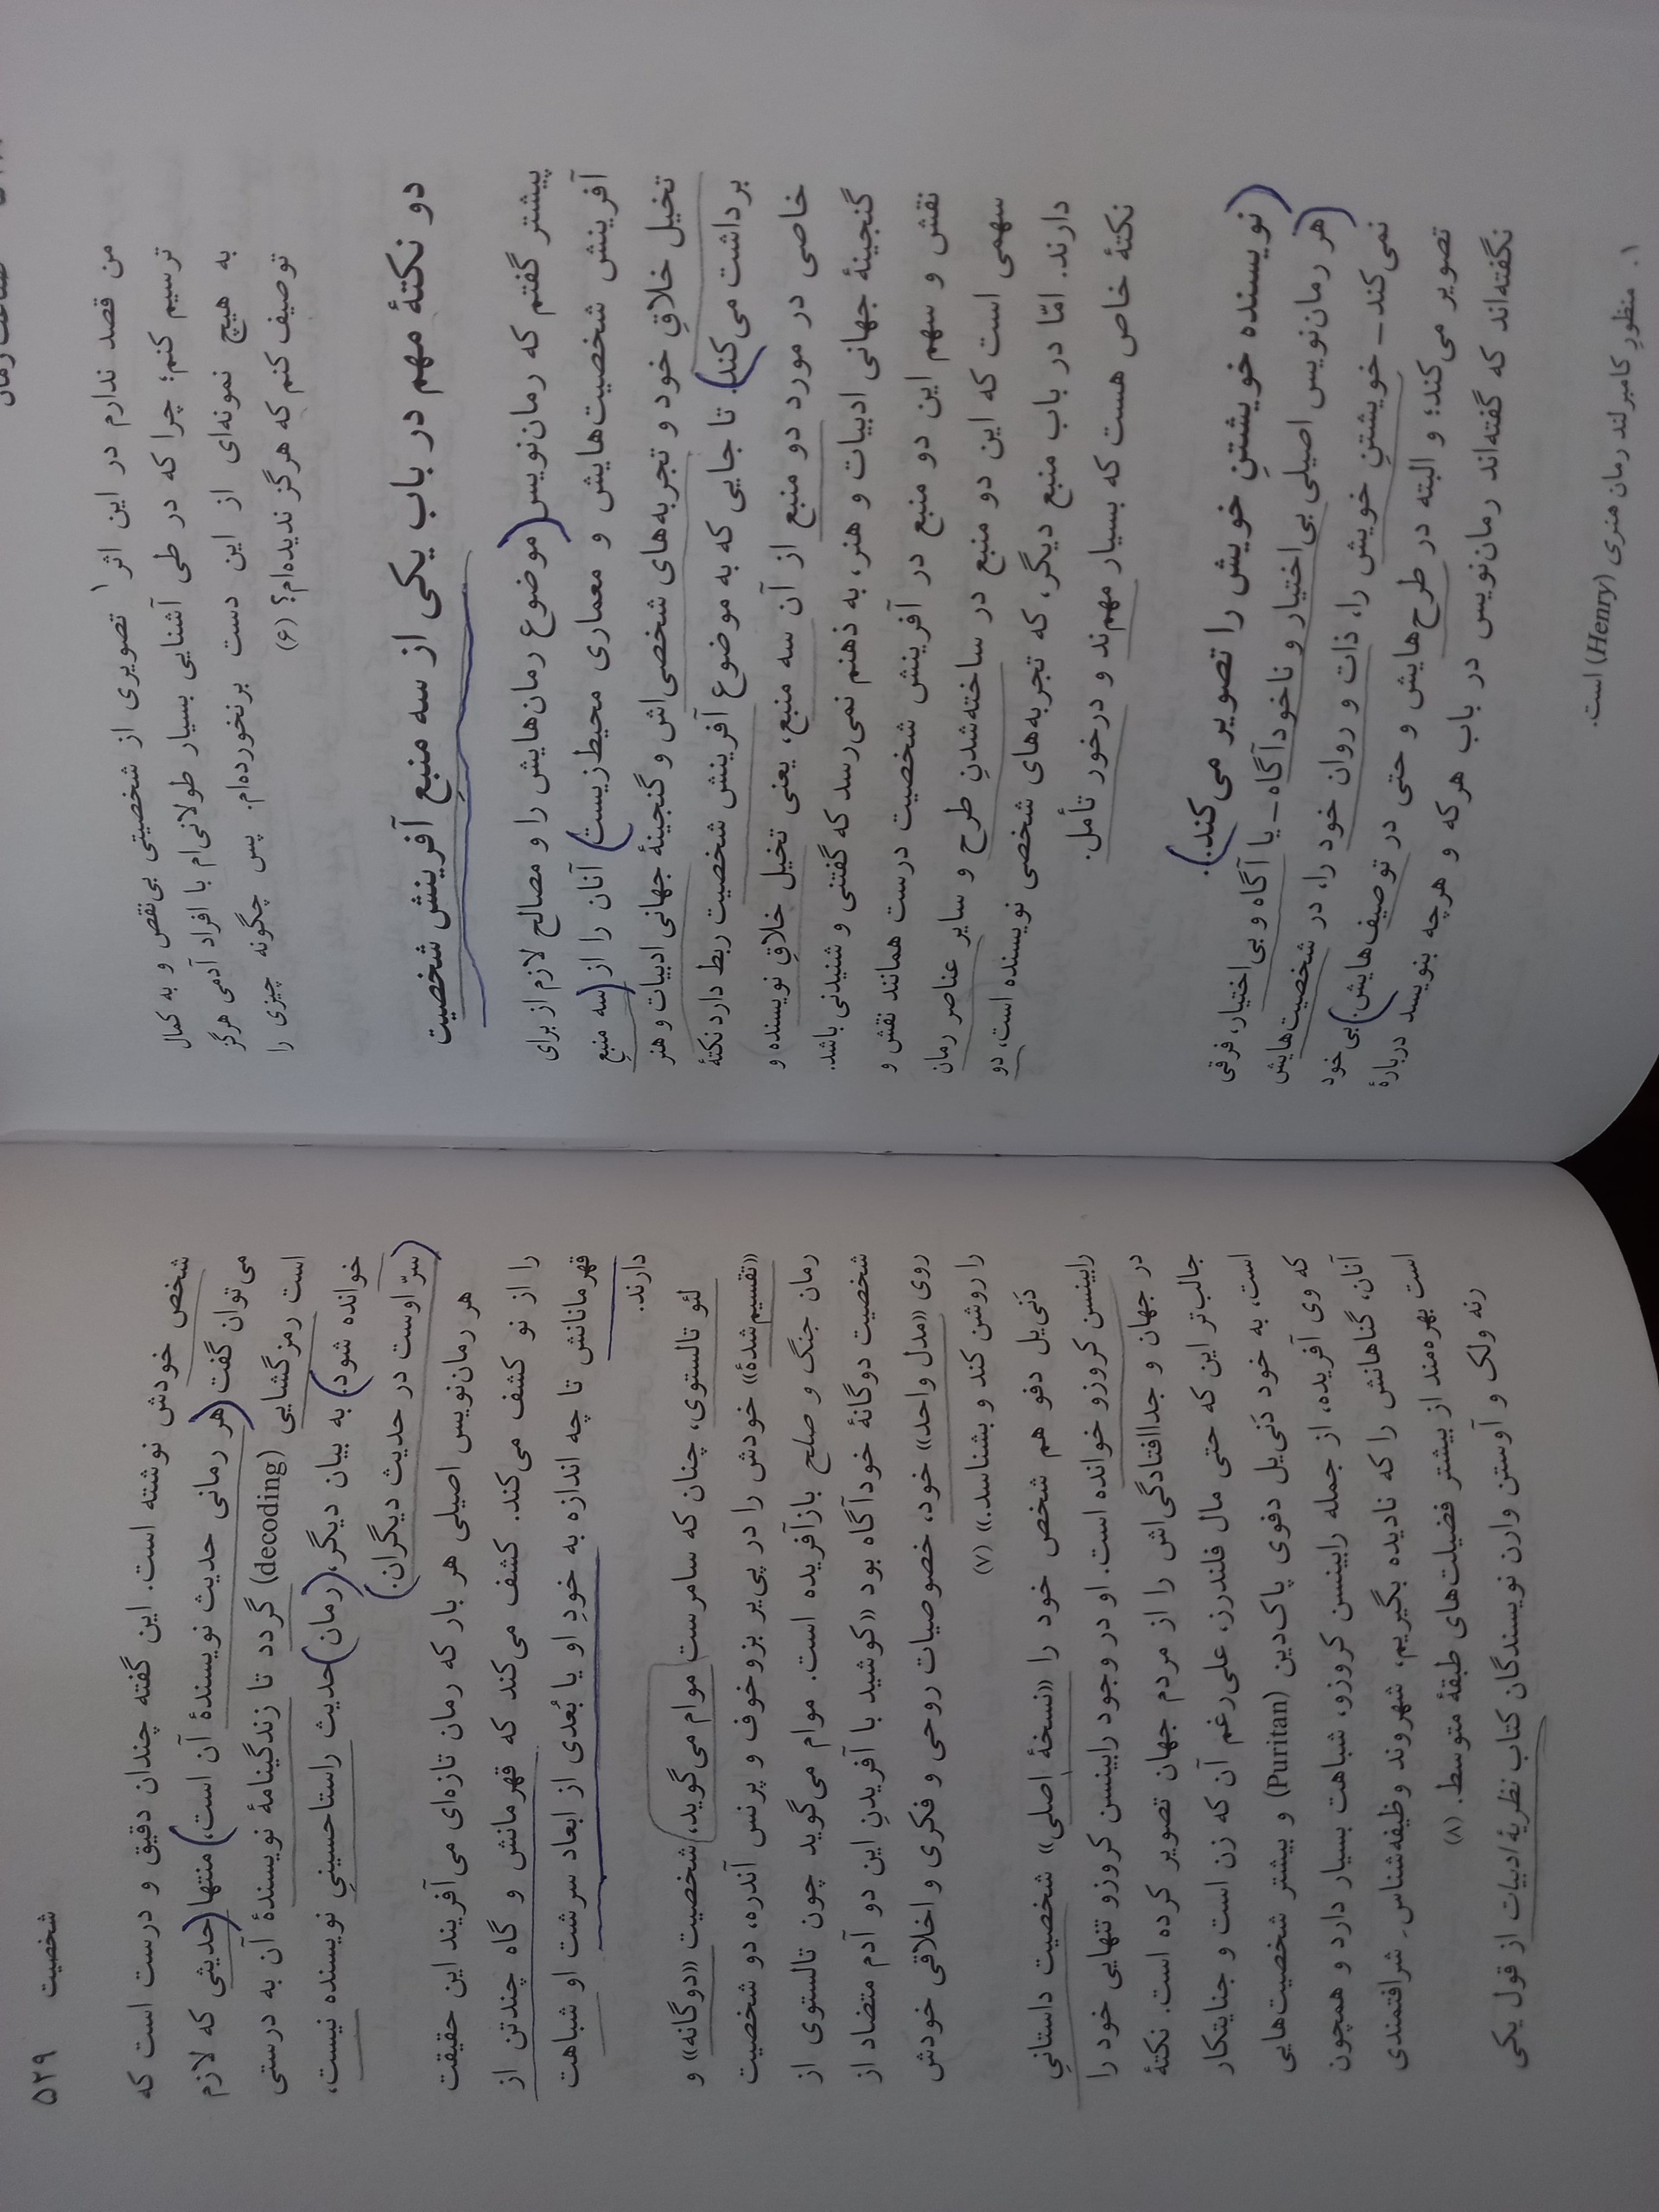 صناعت رمان
من قصد ندارم در این اثر۱ تصویری از شخصیتی بی‌نقص و به کمال
ترسیم کنم؛ چرا که در طی آشنایی بسیار طولانی‌ام با افراد آدمی هرگز
به هیچ نمونه‌ای از این دست برنخورده‌ام. پس چگونه چیزی را
توصیف کنم که هرگز ندیده‌ام؟ (۶)
دو نکتهٔ مهم در باب یکی از سه منبعِ آفرینش شخصیت
پیشتر گفتم که رمان‌نویس (موضوع رمان‌هایش را و مصالح لازم از برای
آفرینش شخصیت‌هایش و معماری محیط‌زیست) آنان را از (سه منبعِ
تخیل خلاقِ خود و تجربه‌های شخصی‌اش و گنجینهٔ جهانی ادبیات و هنر
برداشت می‌کند.) تا جایی که به موضوع آفرینش شخصیت ربط دارد نکتهٔ
خاصی در مورد دو منبع از آن سه منبع، یعنی تخیل خلاقِ نویسنده و
گنجینهٔ جهانی ادبیات و هنر، به ذهنم نمی‌رسد که گفتنی و شنیدنی باشد.
نقش و سهم این دو منبع در آفرینش شخصیت درست همانند نقش و
سهمی است که این دو منبع در ساخته‌شدنِ طرح و سایر عناصر رمان
دارند. امّا در باب منبع دیگر، که تجربه‌های شخصی نویسنده است، دو
نکتهٔ خاص هست که بسیار مهم‌ند و درخور تأمل.
(نویسنده خویشتنِ خویش را تصویر می‌کند.)
(هر رمان‌نویس اصیلی بی‌اختیار و ناخودآگاه – یا آگاه و بی‌اختیار، فرقی
نمی‌کند – خویشتنِ خویش را، ذات و روان خود را، در شخصیت‌هایش
تصویر می‌کند؛ و البته در طرح‌هایش و حتی در توصیف‌هایش.) بی خود
نگفته‌اند که گفته‌اند رمان‌نویس در باب هر که و هر چه بنویسد دربارهٔ
۱. منظورِ کامبرلند رمان هنری (Henry) است.
شخصیت ۵۲۹
شخص خودش نوشته است. این گفته چندان دقیق و درست است که
می‌توان گفت (هر رمانی حدیث نویسندهٔ آن است،) منتها (حدیثی که لازم
است رمزگشایی (decoding) گردد تا زندگینامهٔ نویسندهٔ آن به درستی
خوانده شود.) به بیان دیگر، (رمان) حدیث راستاحسینیِ نویسنده نیست،
(سرّ اوست در حدیث دیگران.)
هر رمان‌نویس اصیلی هر بار که رمان تازه‌ای می‌آفریند این حقیقت
را از نو کشف می‌کند. کشف می‌کند که قهرمانش و گاه چندتن از
قهرمانانش تا چه اندازه به خودِ او یا بُعدی از ابعاد سرشت او شباهت
دارند.
لئو تالستوی، چنان که سامرست موام می‌گوید، شخصیت «دوگانه» و
«تقسیم‌شدهٔ» خودش را در پی‌یر بزوخوف و پرنس آندره، دو شخصیت
رمان جنگ و صلح بازآفریده است. موام می‌گوید چون تالستوی از
شخصیت دوگانهٔ خودآگاه بود «کوشید با آفریدنِ این دو آدم متضاد از
روی «مدل واحد» خود، خصوصیات روحی و فکری و اخلاقی خودش
را روشن کند و بشناسد.» (۷)
دَنی‌یل دفو هم شخص خود را «نسخهٔ اصلی» شخصیت داستانیِ
رابینسن کروزو خوانده است. او در وجود رابینسن کروزو تنهایی خود را
در جهان و جداافتادگی‌اش را از مردم جهان تصویر کرده است. نکتهٔ
جالب‌تر این که حتی مال فلندرز، علی‌رغم آن که زن است و جنایتکار
است، به خود دَنی‌یل دفوی پاک‌دین (Puritan) و بیشتر شخصیت‌هایی
که وی آفریده، از جمله رابینسن کروزو، شباهت بسیار دارد و همچون
آنان، گناهانش را که نادیده بگیریم، شهروند وظیفه‌شناسِ شرافتمندی
است بهره‌مند از بیشتر فضیلت‌های طبقهٔ متوسط. (۸)
رنه ولک و آوستن وارن نویسندگان کتاب نظریهٔ ادبیات از قول یکی